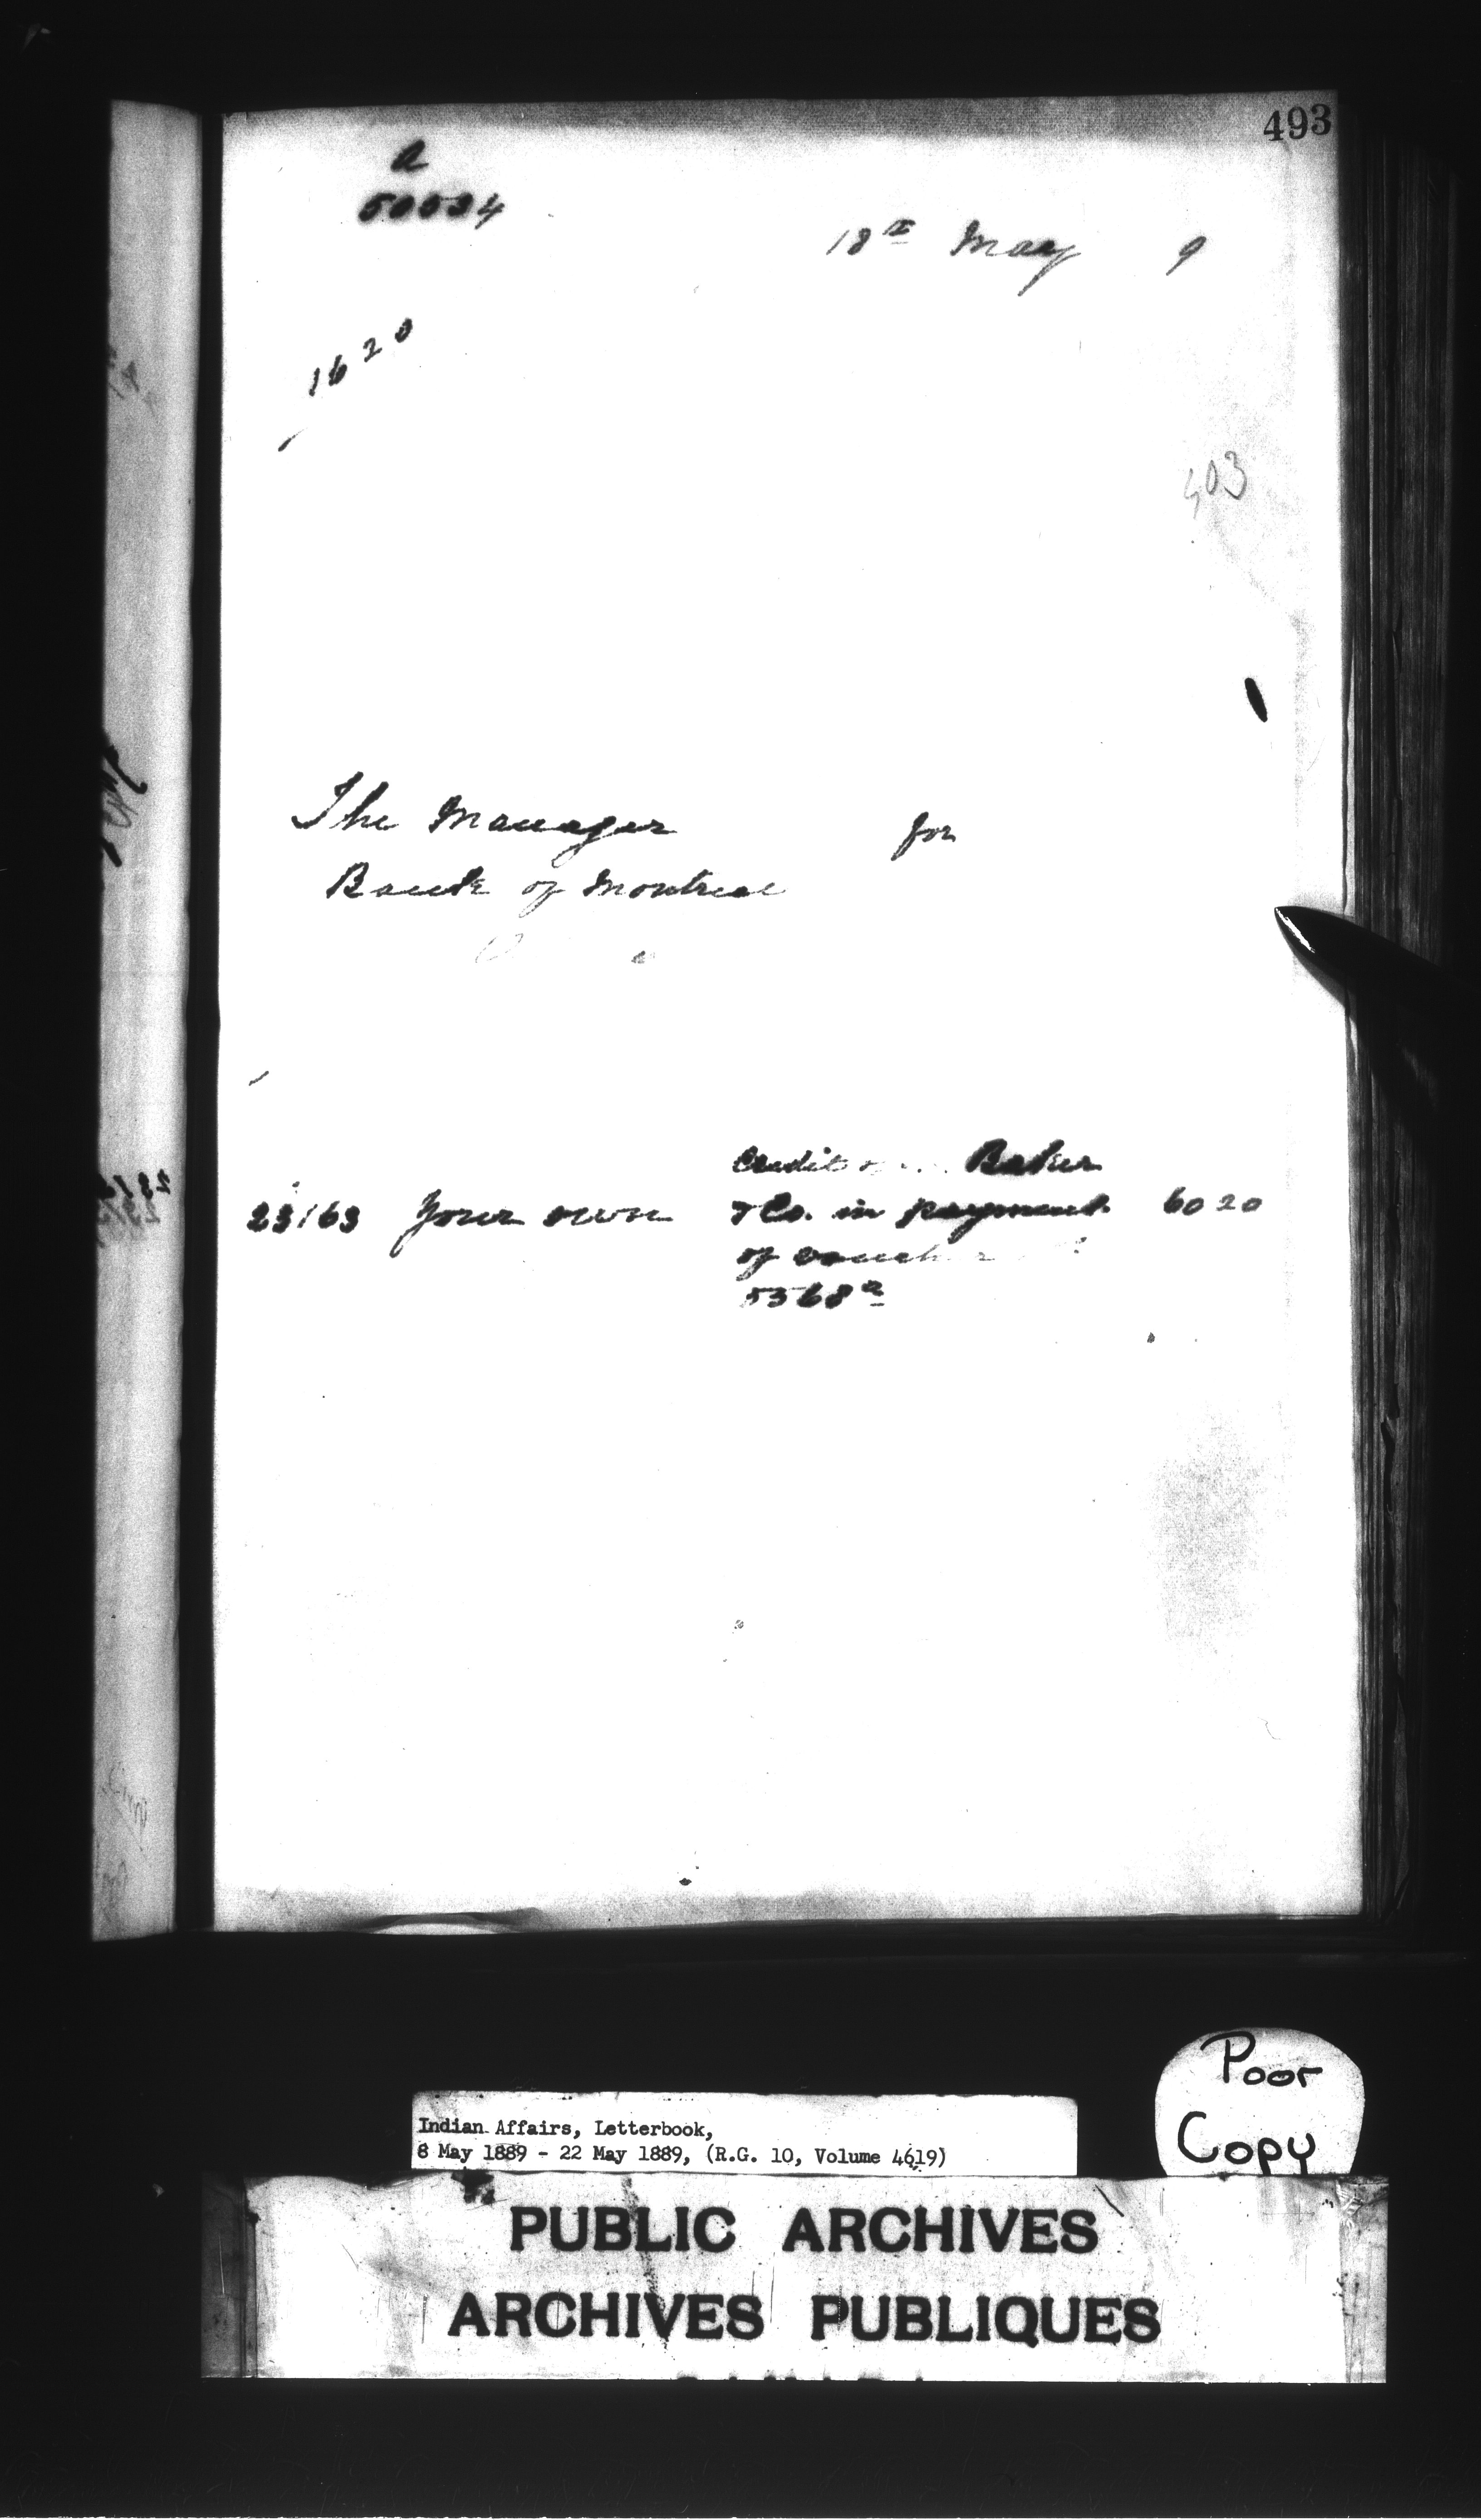 493
a
50524
18th May 9
1620
403
The Manager for
Bank of Montreal
Credit Baker
23163 Your own & Co. in payment 60 20
of
5368a
Poor
Copy
Indian Affairs, Letterbook,
8 May 1889 - 22 May 1889, (R.G. 10, Volume 4619)
PUBLIC ARCHIVES
ARCHIVES PUBLIQUES